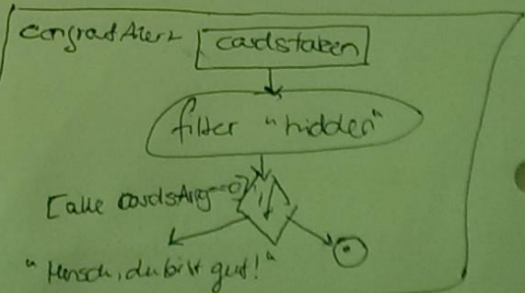 congratAlert
cardstaken
filter "hidden"
[alle cardsArg==0]
"Mensch, du bist gut!"